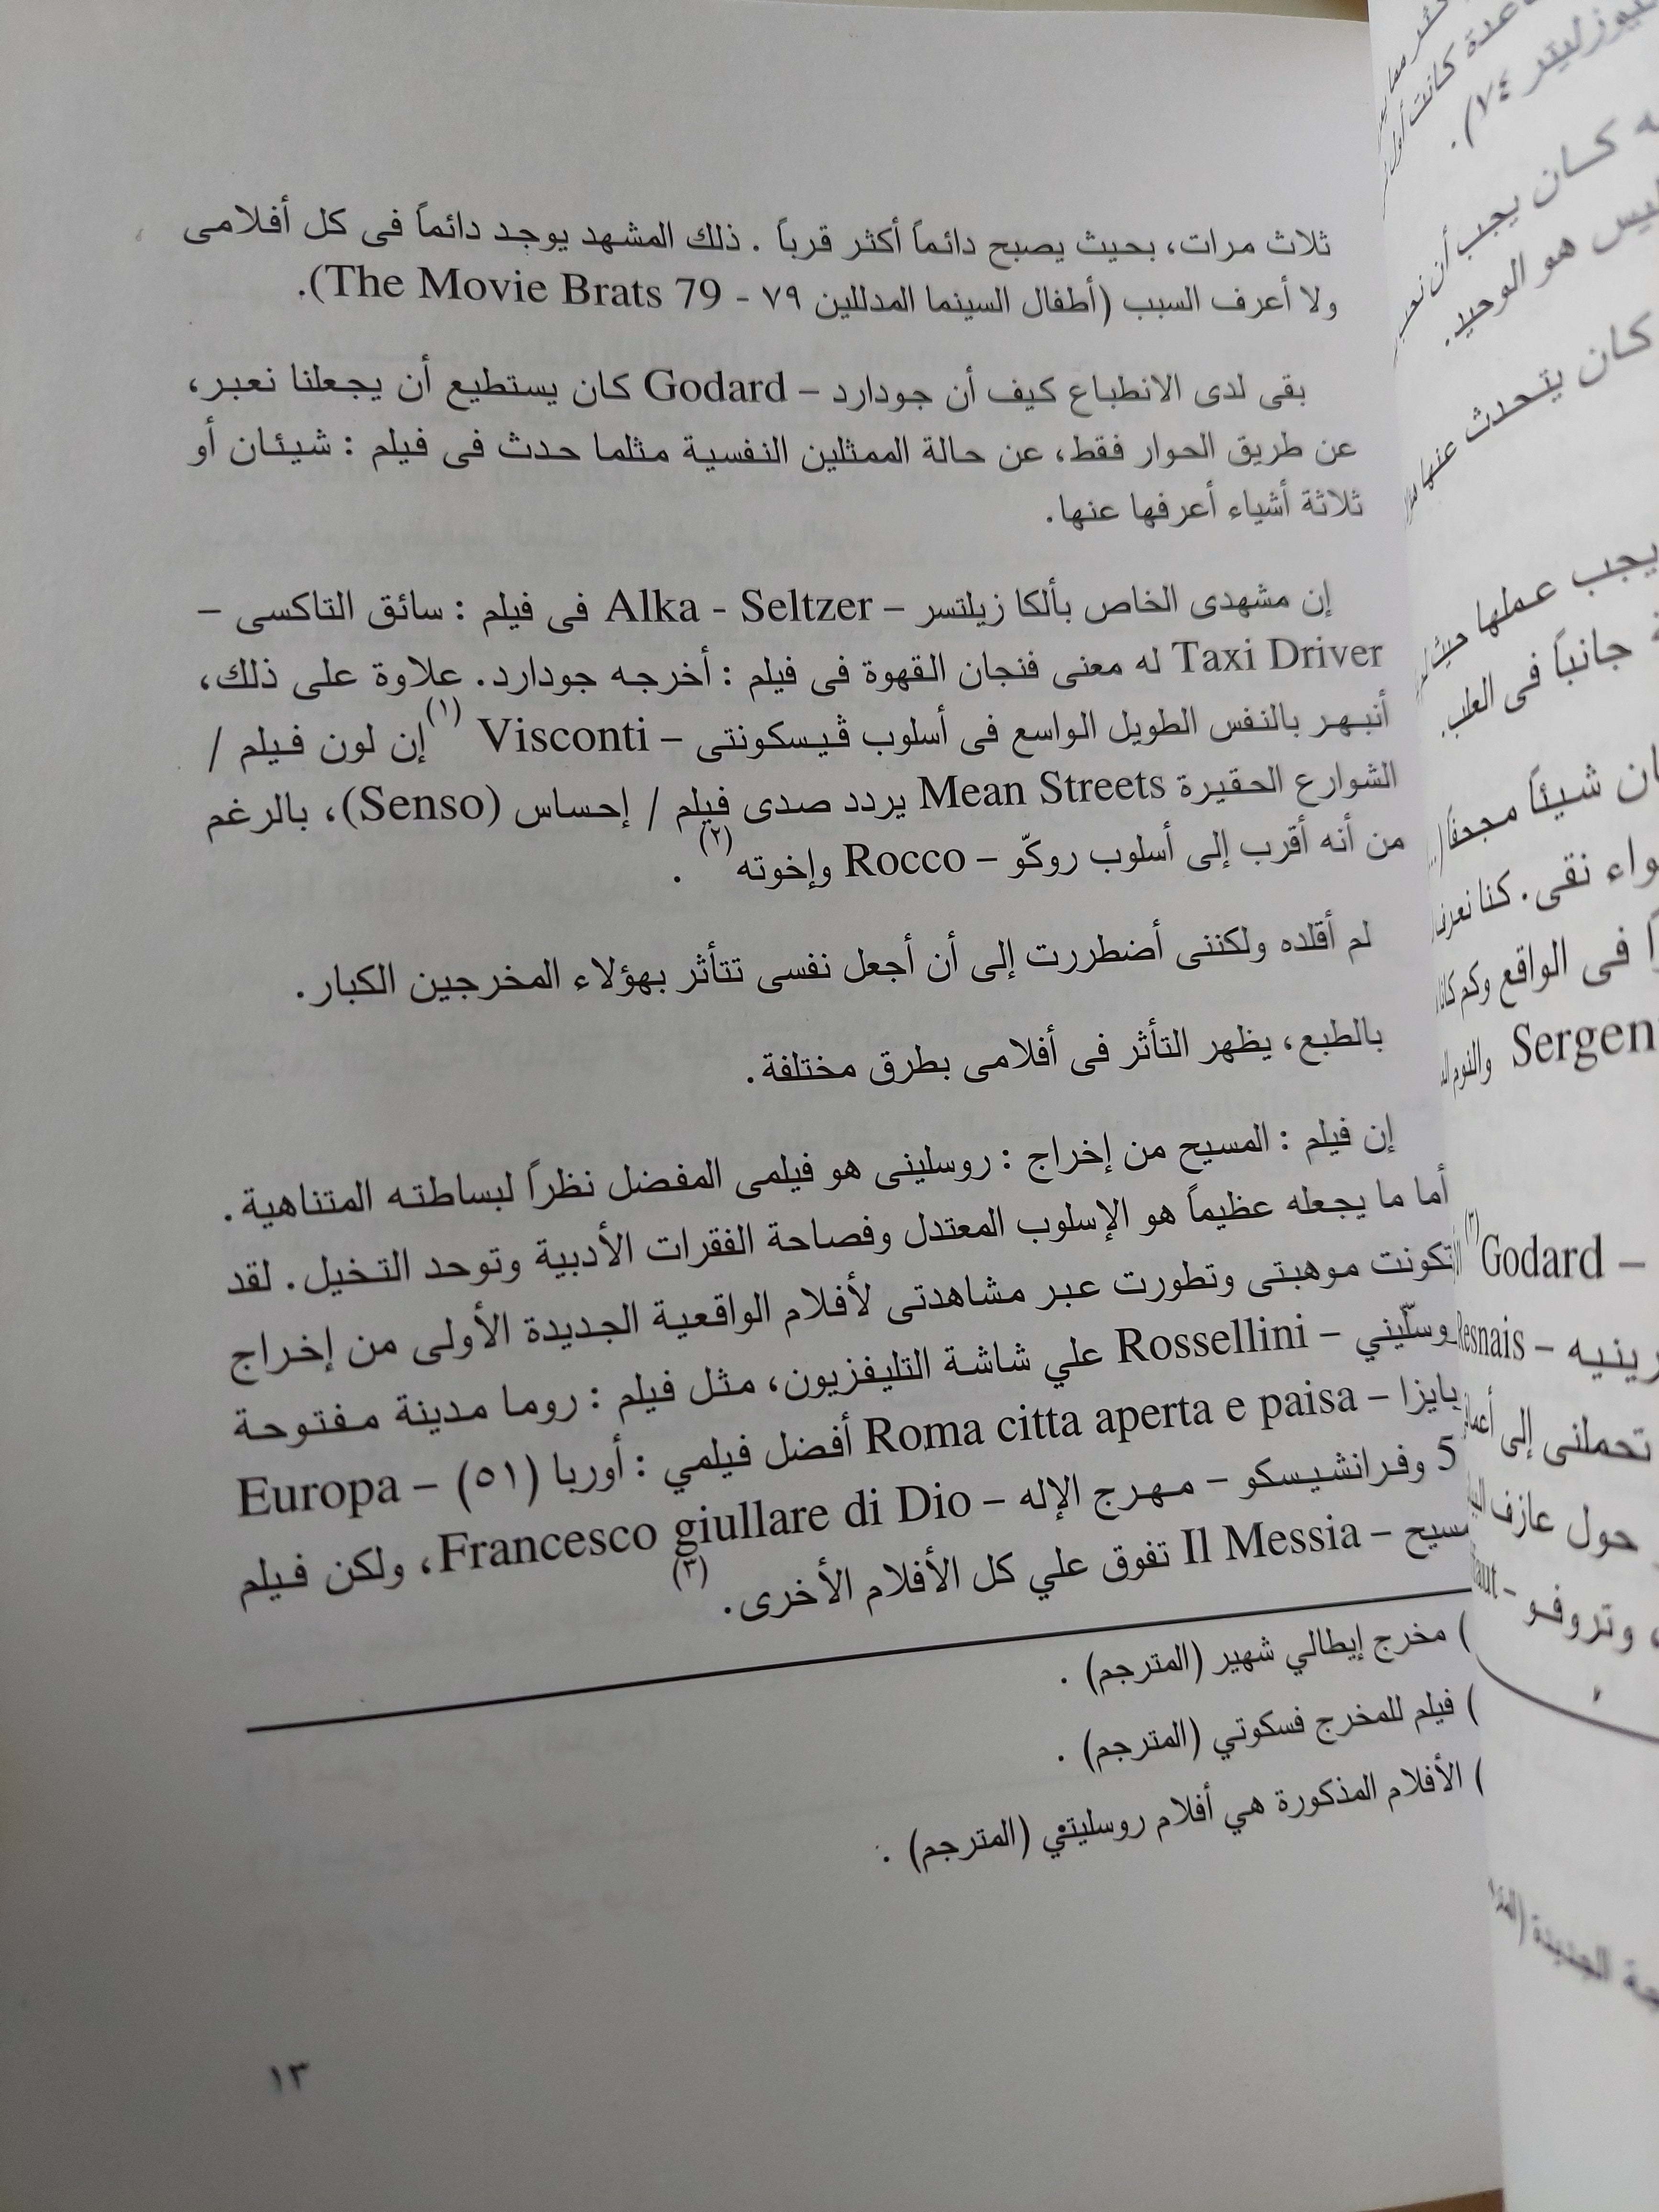 ثلاث مرات، بحيث يصبح دائماً أكثر قرباً . ذلك المشهد يوجد دائماً فى كل أفلامى
ولا أعرف السبب (أطفال السينما المدللين ٧٩ - The Movie Brats 79).
بقى لدى الانطباع كيف أن جودارد – Godard كان يستطيع أن يجعلنا نعبر،
عن طريق الحوار فقط، عن حالة الممثلين النفسية مثلما حدث فى فيلم : شيئان أو
ثلاثة أشياء أعرفها عنها.
إن مشهدى الخاص بألكا زيلتسر – Alka - Seltzer فى فيلم : سائق التاكسى –
Taxi Driver له معنى فنجان القهوة فى فيلم : أخرجه جودارد. علاوة على ذلك،
أنبهر بالنفس الطويل الواسع فى أسلوب ڤيسكونتى – Visconti (١) إن لون فيلم /
الشوارع الحقيرة Mean Streets يردد صدى فيلم / إحساس (Senso)، بالرغم
من أنه أقرب إلى أسلوب روكّو – Rocco وإخوته (٢) .
لم أقلده ولكننى أضطررت إلى أن أجعل نفسى تتأثر بهؤلاء المخرجين الكبار.
بالطبع، يظهر التأثر فى أفلامى بطرق مختلفة.
إن فيلم : المسيح من إخراج : روسلينى هو فيلمى المفضل نظراً لبساطته المتناهية.
أما ما يجعله عظيماً هو الإسلوب المعتدل وفصاحة الفقرات الأدبية وتوحد التخيل. لقد
تكونت موهبتى وتطورت عبر مشاهدتى لأفلام الواقعية الجديدة الأولى من إخراج
وسلّيني – Rossellini علي شاشة التليفزيون، مثل فيلم : روما مدينة مفتوحة
بايزا – Roma citta aperta e paisa أفضل فيلمي : أوربا (٥١) – Europa
5 وفرانشيسكو – مهرج الإله – Francesco giullare di Dio، ولكن فيلم
سيح – Il Messia تفوق علي كل الأفلام الأخرى. (٣)
) مخرج إيطالي شهير (المترجم) .
) فيلم للمخرج فسكوتي (المترجم) .
) الأفلام المذكورة هي أفلام روسليتي (المترجم) .
١٣
ليوزليتر ٧٤).
ه كان يجب أن
ليس هو الوحيد.
كان يتحدث عنها
يجب عملها حيث
جانباً فى العلب.
ان شيئاً مجحفاً
واء نقى. كنا نعرف
اً فى الواقع وكم
Sergen والنوم
Godard – (٣)
رينيه – Resnais
تحملنى إلى
حول عازف
وتروفو –